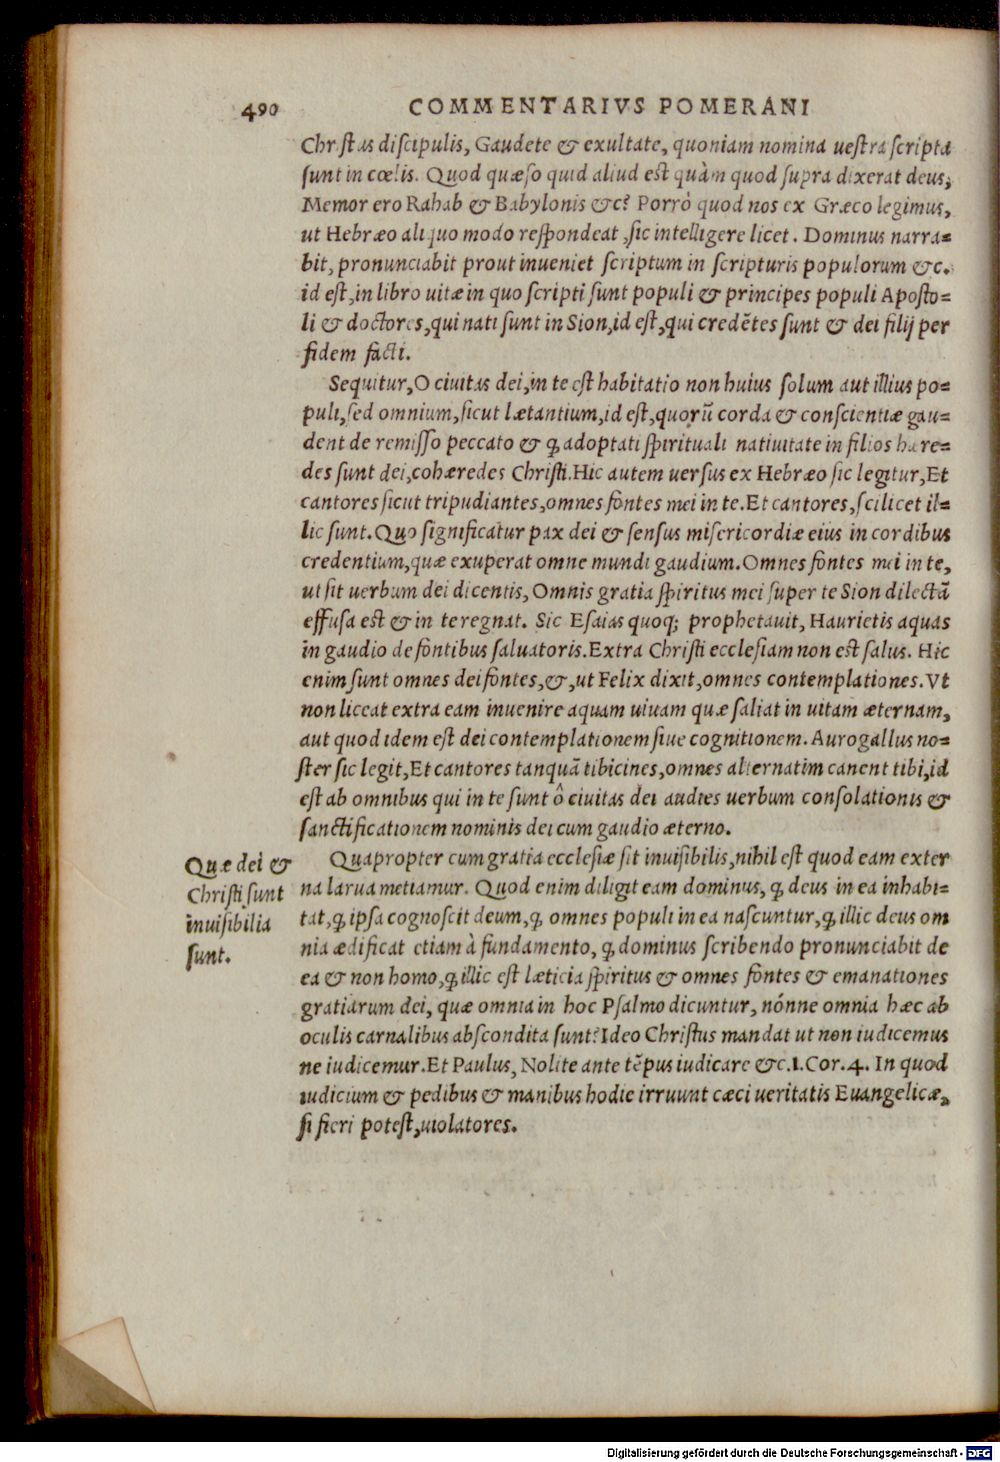 490 COMMENTARIVS POMERANI
Christus discipulis, Gaudete & exultate, quoniam nomina uestra scripta
sunt in cœlis. Quod quæso quid aliud est quàm quod supra dixerat deus,
Memor ero Rahab & Babylonis &c? Porrò quod nos ex Græco legimus,
ut Hebræo aliquo modo respondeat, sic intelligere licet. Dominus narra=
bit, pronunciabit prout inueniet scriptum in scripturis populorum &c.
id est, in libro uitæ in quo scripti sunt populi & principes populi Aposto=
li & doctores, qui nati sunt in Sion, id est, qui credẽtes sunt & dei filij per
fidem facti.
Sequitur, O ciuitas dei, in te est habitatio non huius solum aut illius po=
puli, sed omnium, sicut lætantium, id est, quorũ corda & conscientiæ gau=
dent de remisso peccato & ꝙ adoptati spirituali natiuitate in filios hære=
des sunt dei, cohæredes Christi. Hic autem uersus ex Hebræo sic legitur, Et
cantores sicut tripudiantes, omnes fontes mei in te. Et cantores, scilicet il=
lic sunt. Quo significatur pax dei & sensus misericordiæ eius in cordibus
credentium, quæ exuperat omne mundi gaudium. Omnes fontes mei in te,
ut sit uerbum dei dicentis, Omnis gratia spiritus mei super te Sion dilectã
effusa est & in te regnat. Sic Esaias quoq; prophetauit, Haurietis aquas
in gaudio de fontibus saluatoris. Extra Christi ecclesiam non est salus. Hic
enim sunt omnes dei fontes, &, ut Felix dixit, omnes contemplationes. Vt
non liceat extra eam inuenire aquam uiuam quæ saliat in uitam æternam,
aut quod idem est dei contemplationem siue cognitionem. Aurogallus no=
ster sic legit, Et cantores tanquã tibicines, omnes alternatim canent tibi, id
est ab omnibus qui in te sunt ô ciuitas dei audies uerbum consolationis &
sanctificationem nominis dei cum gaudio æterno.
Quæ dei &
Christi sunt
inuisibilia
sunt.
Quapropter cum gratia ecclesiæ sit inuisibilis, nihil est quod eam exter
na larua metiamur. Quod enim diligit eam dominus, ꝙ deus in ea inhabi=
tat, ꝙ ipsa cognoscit deum, ꝙ omnes populi in ea nascuntur, ꝙ illic deus om
nia ædificat etiam à fundamento, ꝙ dominus scribendo pronunciabit de
ea & non homo, ꝙ illic est læticia spiritus & omnes fontes & emanationes
gratiarum dei, quæ omnia in hoc Psalmo dicuntur, nónne omnia hæc ab
oculis carnalibus abscondita sunt? Ideo Christus mandat ut non iudicemus
ne iudicemur. Et Paulus, Nolite ante tẽpus iudicare &c. 1. Cor. 4. In quod
iudicium & pedibus & manibus hodie irruunt cæci ueritatis Euangelicæ,
si fieri potest, uiolatores.
Digitalisierung gefördert durch die Deutsche Forschungsgemeinschaft - DFG